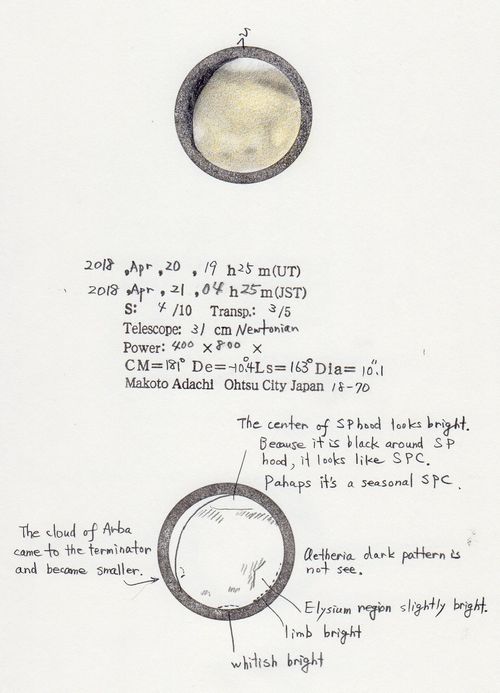 S
2018 , Apr , 20 , 19 h 25 m (UT)
2018 , Apr , 21 , 04 h 25 m (JST)
S: 4 /10 Transp.: 3/5
Telescope: 31 cm Newtonian
Power: 400 × 800 ×
CM=181° De=-10.°4 Ls=163° Dia=10."1
Makoto Adachi Ohtsu City Japan 18-70
The center of SP hood looks bright.
Because it is black around SP
hood, it looks like SPC.
Pahaps it's a seasonal SPC.
The cloud of Arba
came to the terminator
and became smaller.
Aetheria dark pattern is
not see.
Elysium region slightly bright.
limb bright
whitish bright